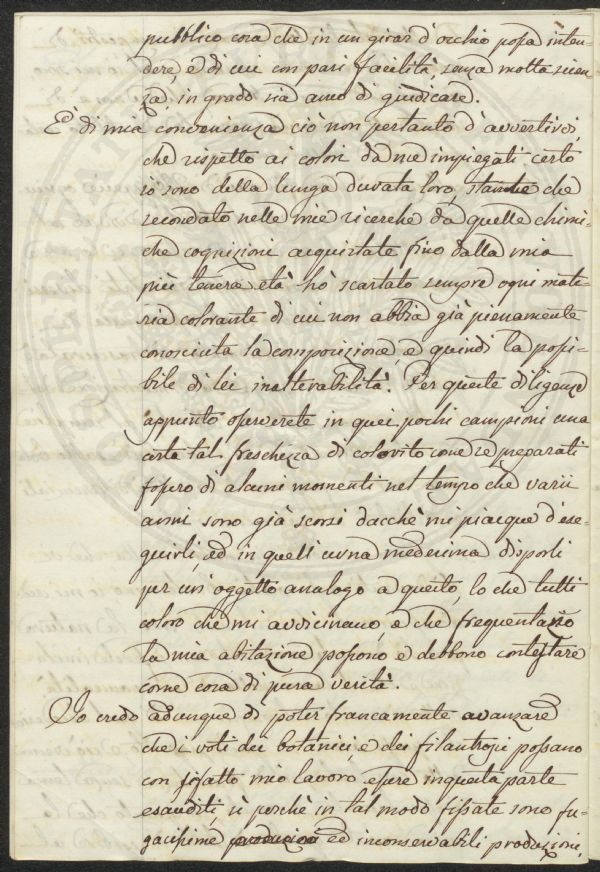 pubblico cosa che in un girar d'occhio possa inten-
dere, e di cui con pari facilità, senza molta scien-
za, in grado sia anco di giudicare.
E' di mia convenienza ciò non pertanto d'avvertirvi,
che rispetto ai colori da me impiegati certo
io sono della lunga durata loro, stante che
secondato nelle mie ricerche da quelle chimi-
che cognizioni acquistate fino dalla mia
più tenera età hò scartato sempre ogni mate-
ria colorante di cui non abbia già pienamente
conosciuta la composizione, e quindi la possi-
bile di lei inalterabilità. Per queste diligenze
appunto osserverete in quei pochi campioni una
certa tal freschezza di colorito come se preparati
fossero di alcuni momenti nel tempo che varii
anni sono già scorsi dacchè mi piacque d'ese-
guirli, ed in quell'urna medesima disporli
per un'oggetto analogo a questo, lo che tutti
coloro che mi avvicinano, e che frequentano
la mia abitazione possono e debbono contestare
come cosa di pura verità.
Io credo adunque di poter francamente avanzare
che i voti dei botanici, e dei filantropi possano
con sifatto mio lavoro essere in questa parte
esauditi, sì perchè in tal modo fissate sono fu-
gacissime produzioni ed inconservabili produzioni,